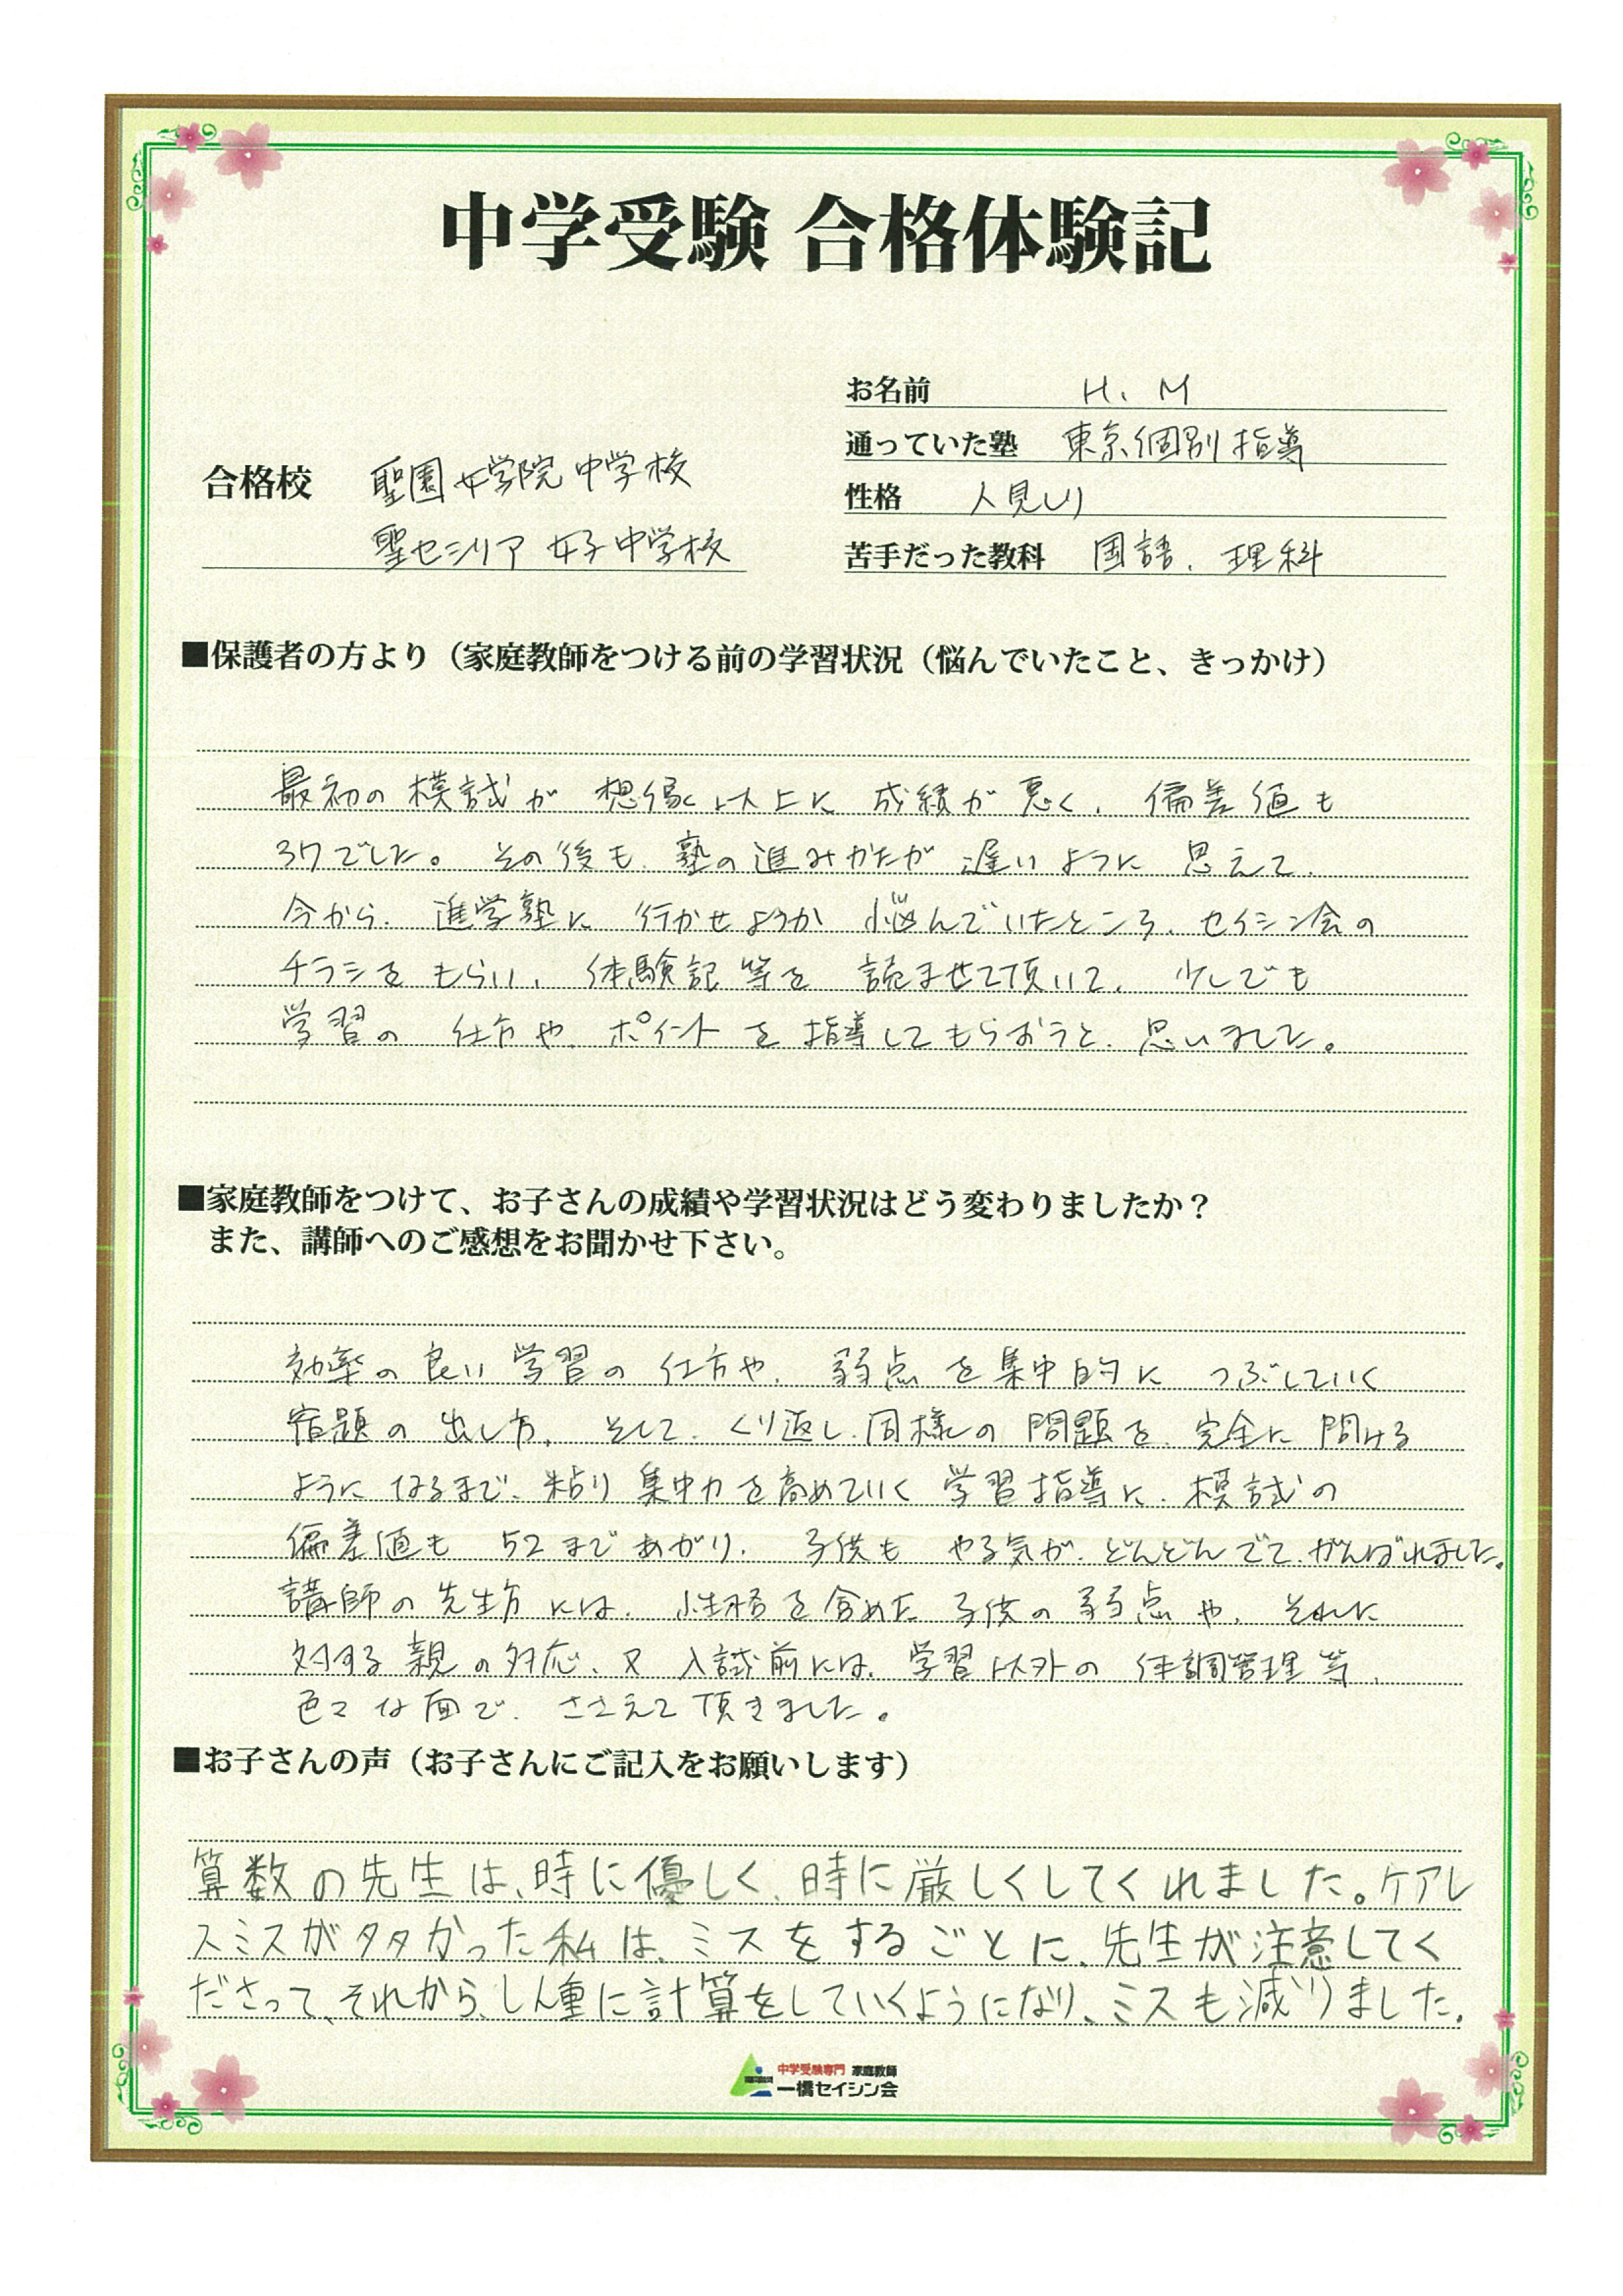 中学受験 合格体験記
お名前 H、M
通っていた塾 東京個別指導
合格校 聖園女学院中学校
性格 人見しり
聖セシリア女子中学校
苦手だった教科 国語、理科
■保護者の方より（家庭教師をつける前の学習状況（悩んでいたこと、きっかけ）
最初の模試が想像以上に成績が悪く、偏差値も
37でした。その後も、塾の進みかたが遅いように思えて、
今から、進学塾に行かせようか悩んでいたところ、セイシン会の
チラシをもらい、体験記等を読ませて頂いて、少しでも
学習の仕方や、ポイントを指導してもらおうと、思いました。
■家庭教師をつけて、お子さんの成績や学習状況はどう変わりましたか？
また、講師へのご感想をお聞かせ下さい。
効率の良い学習の仕方や、弱点を集中的につぶしていく
宿題の出し方、そして、くり返し、同様の問題を、完全に問ける
ようになるまで、粘り集中力を高めていく学習指導に、模試の
偏差値も52まであがり、子供もやる気が、どんどんでて、がんばれました。
講師の先生方には、性格を含めた子供の弱点や、それに
対する親の対応、又入試前には、学習以外の体調管理等、
色々な面で、ささえて頂きました。
■お子さんの声（お子さんにご記入をお願いします）
算数の先生は、時に優しく、時に厳しくしてくれました。ケアレ
スミスが多かった私は、ミスをするごとに、先生が注意してく
ださって、それから、しん重に計算をしていくようになり、ミスも減りました。
中学受験専門 家庭教師
一橋セイシン会